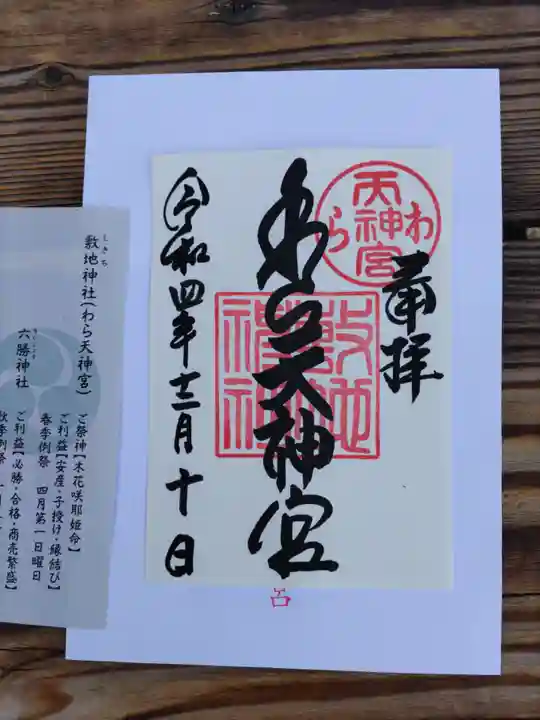 奉拝
わら天神宮
令和四年十二月十日
わら
天神宮
敷地
神社
しきち
敷地神社(わら天神宮)
ご祭神【木花咲耶姫命】
ご利益【安産・子授け・縁結び】
春季例祭 四月第一日曜日
六勝神社
ご利益【必勝・合格・商売繁盛】
秋季例祭